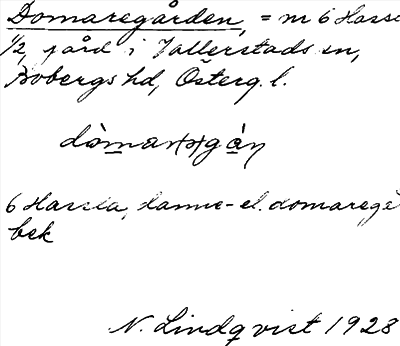 Domaregården, = nr 6 Harsta
1/2, gård i Vallerstads sn,
Bobergs hd, Österg. l.
dòmar(ə)gán
6 Harsta, danne- el. domaregå
bek
N. Lindqvist 1928